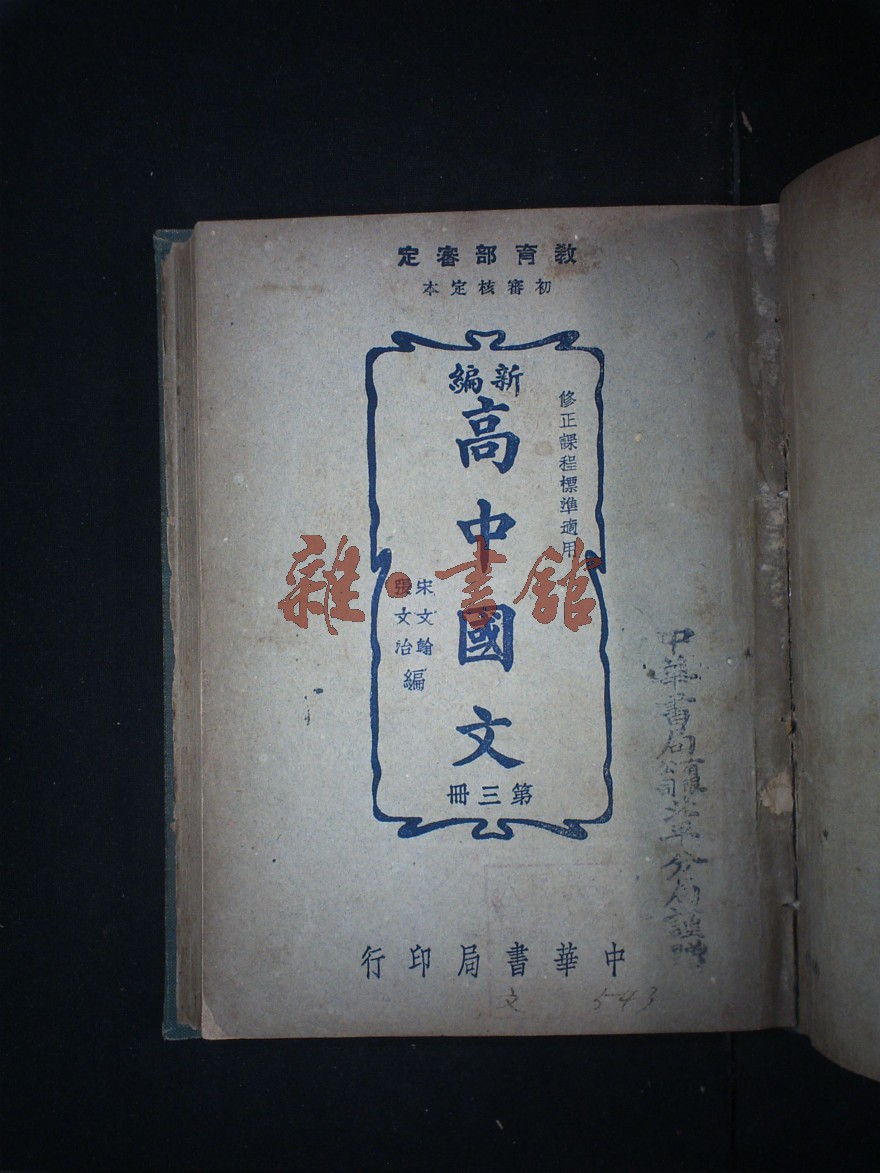 教育部審定
初審核定本
修正課程標準適用
新編
高中國文
第三冊
宋文翰
張文治
編
中華書局印行
中華書局有限公司北平分局謹贈
文 543
雜·書館